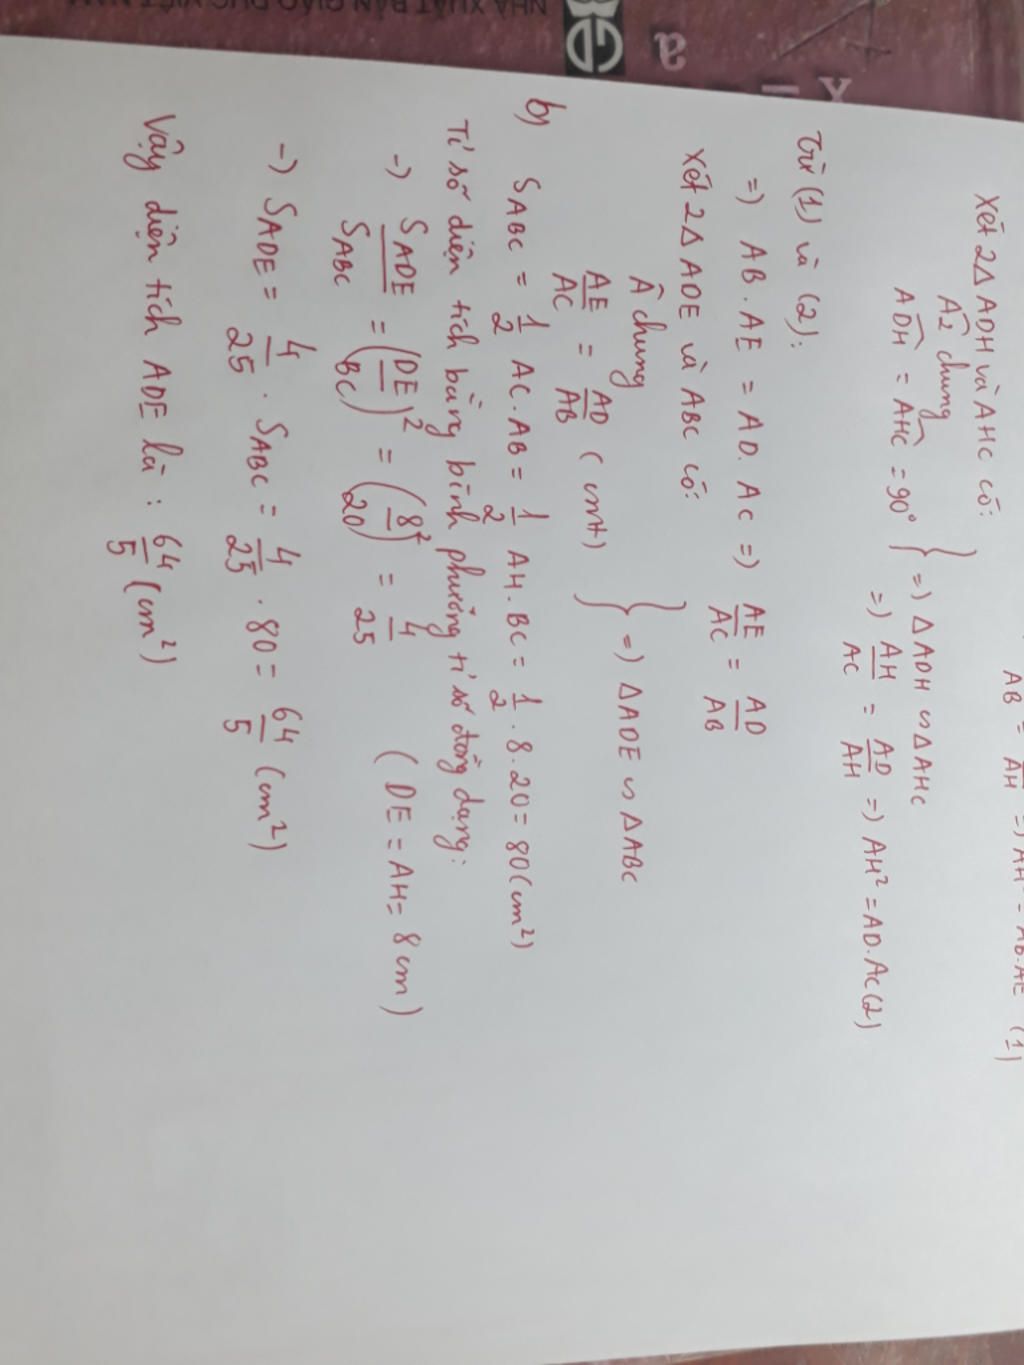 AB = AH => AH² = AB.AE (1)
Xét 2Δ ADH và AHC có:
Â2 chung
ADH = AHC = 90° } => Δ ADH ∽ Δ AHC
=> AH/AC = AD/AH => AH² = AD.AC (2)
Từ (1) và (2):
=> AB.AE = AD.AC => AE/AC = AD/AB
Xét 2Δ ADE và ABC có:
Â chung
AE/AC = AD/AB (cmt) } => Δ ADE ∽ Δ ABC
b) SABC = 1/2 AC.AB = 1/2 AH.BC = 1/2 . 8.20 = 80 (cm²)
Tỉ số diện tích bằng bình phương tỉ số đồng dạng:
-> SADE/SABC = (DE/BC)² = (8/20)² = 4/25 (DE = AH = 8cm)
-> SADE = 4/25 . SABC = 4/25 . 80 = 64/5 (cm²)
Vậy diện tích ADE là: 64/5 (cm²)
NHÀ XUẤT BẢN GIÁO DỤC VIỆT NAM
a
x